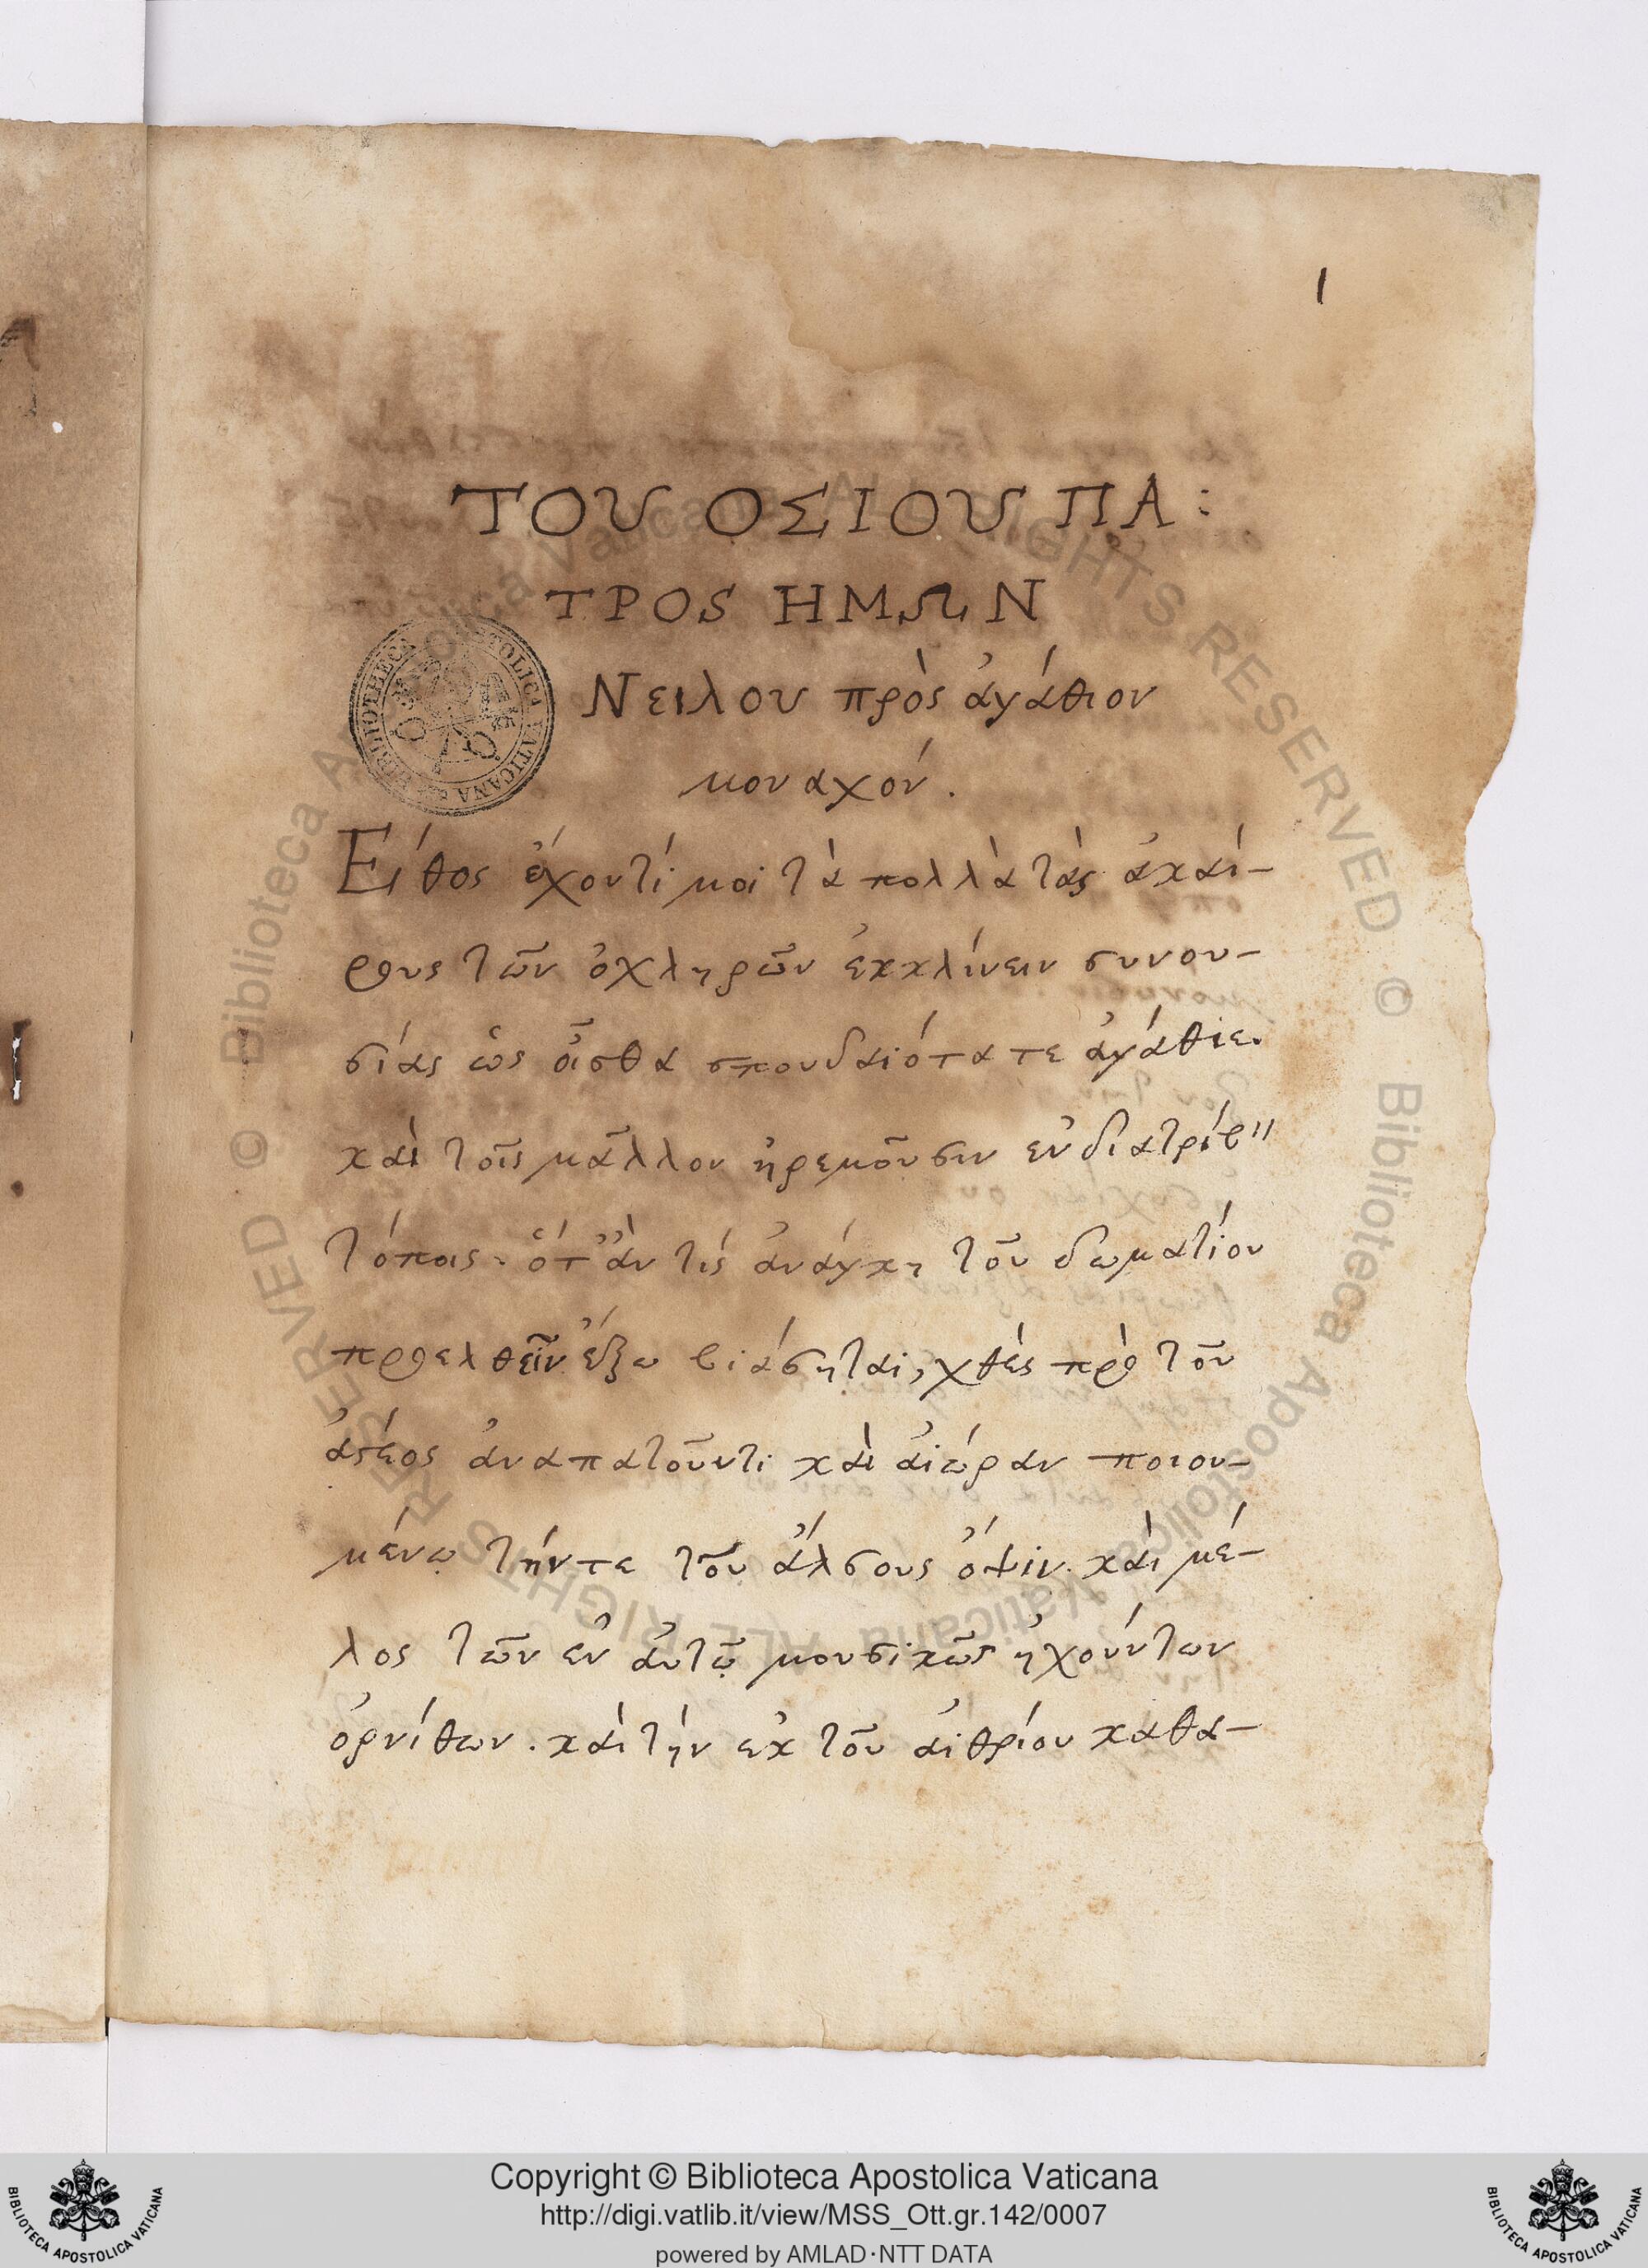 1
ΤΟΥ ΟΣΙΟΥ ΠΑ:
ΤΡΟS ΗΜΩΝ
Νειλου πρὸς ἀγάθιον
μοναχόν.
Εἴθος ἔχοντί μοι τὰ πολλὰ τὰς ἀκαί-
ρους τῶν ὀχληρῶν ἐκκλίνειν συνου-
σίας ὡς οἶσθα σπουδαιότατε ἀγάθιε.
καὶ τοῖς μᾶλλον ἠρεμοῦσιν ἐνδιατρίβ"
τόποις. ὅτ' ἂν τίς ἀνάγκη τοῦ δωματίου
προελθεῖν ἔξω βιάσηται, χθὲς πρὸ τοῦ
ἄστεος ἀναπατοῦντι καὶ αἰώραν ποιου-
μένῳ τήντε τοῦ ἄλσους ὄψιν. καὶ μέ-
λος τῶν ἐν ἀυτῷ μουσικῶς ἠχούντων
ὀρνίθων. καὶ τὴν ἐκ τοῦ αἰθρίου καθα-
BIBLIOTHECA APOSTOLICA VATICANA
© Biblioteca Apostolica Vaticana ALL RIGHTS RESERVED © Biblioteca Apostolica Vaticana ALL RIGHTS RESERVED
Copyright © Biblioteca Apostolica Vaticana
http://digi.vatlib.it/view/MSS_Ott.gr.142/0007
powered by AMLAD·NTT DATA
BIBLIOTECA APOSTOLICA VATICANA
BIBLIOTECA APOSTOLICA VATICANA